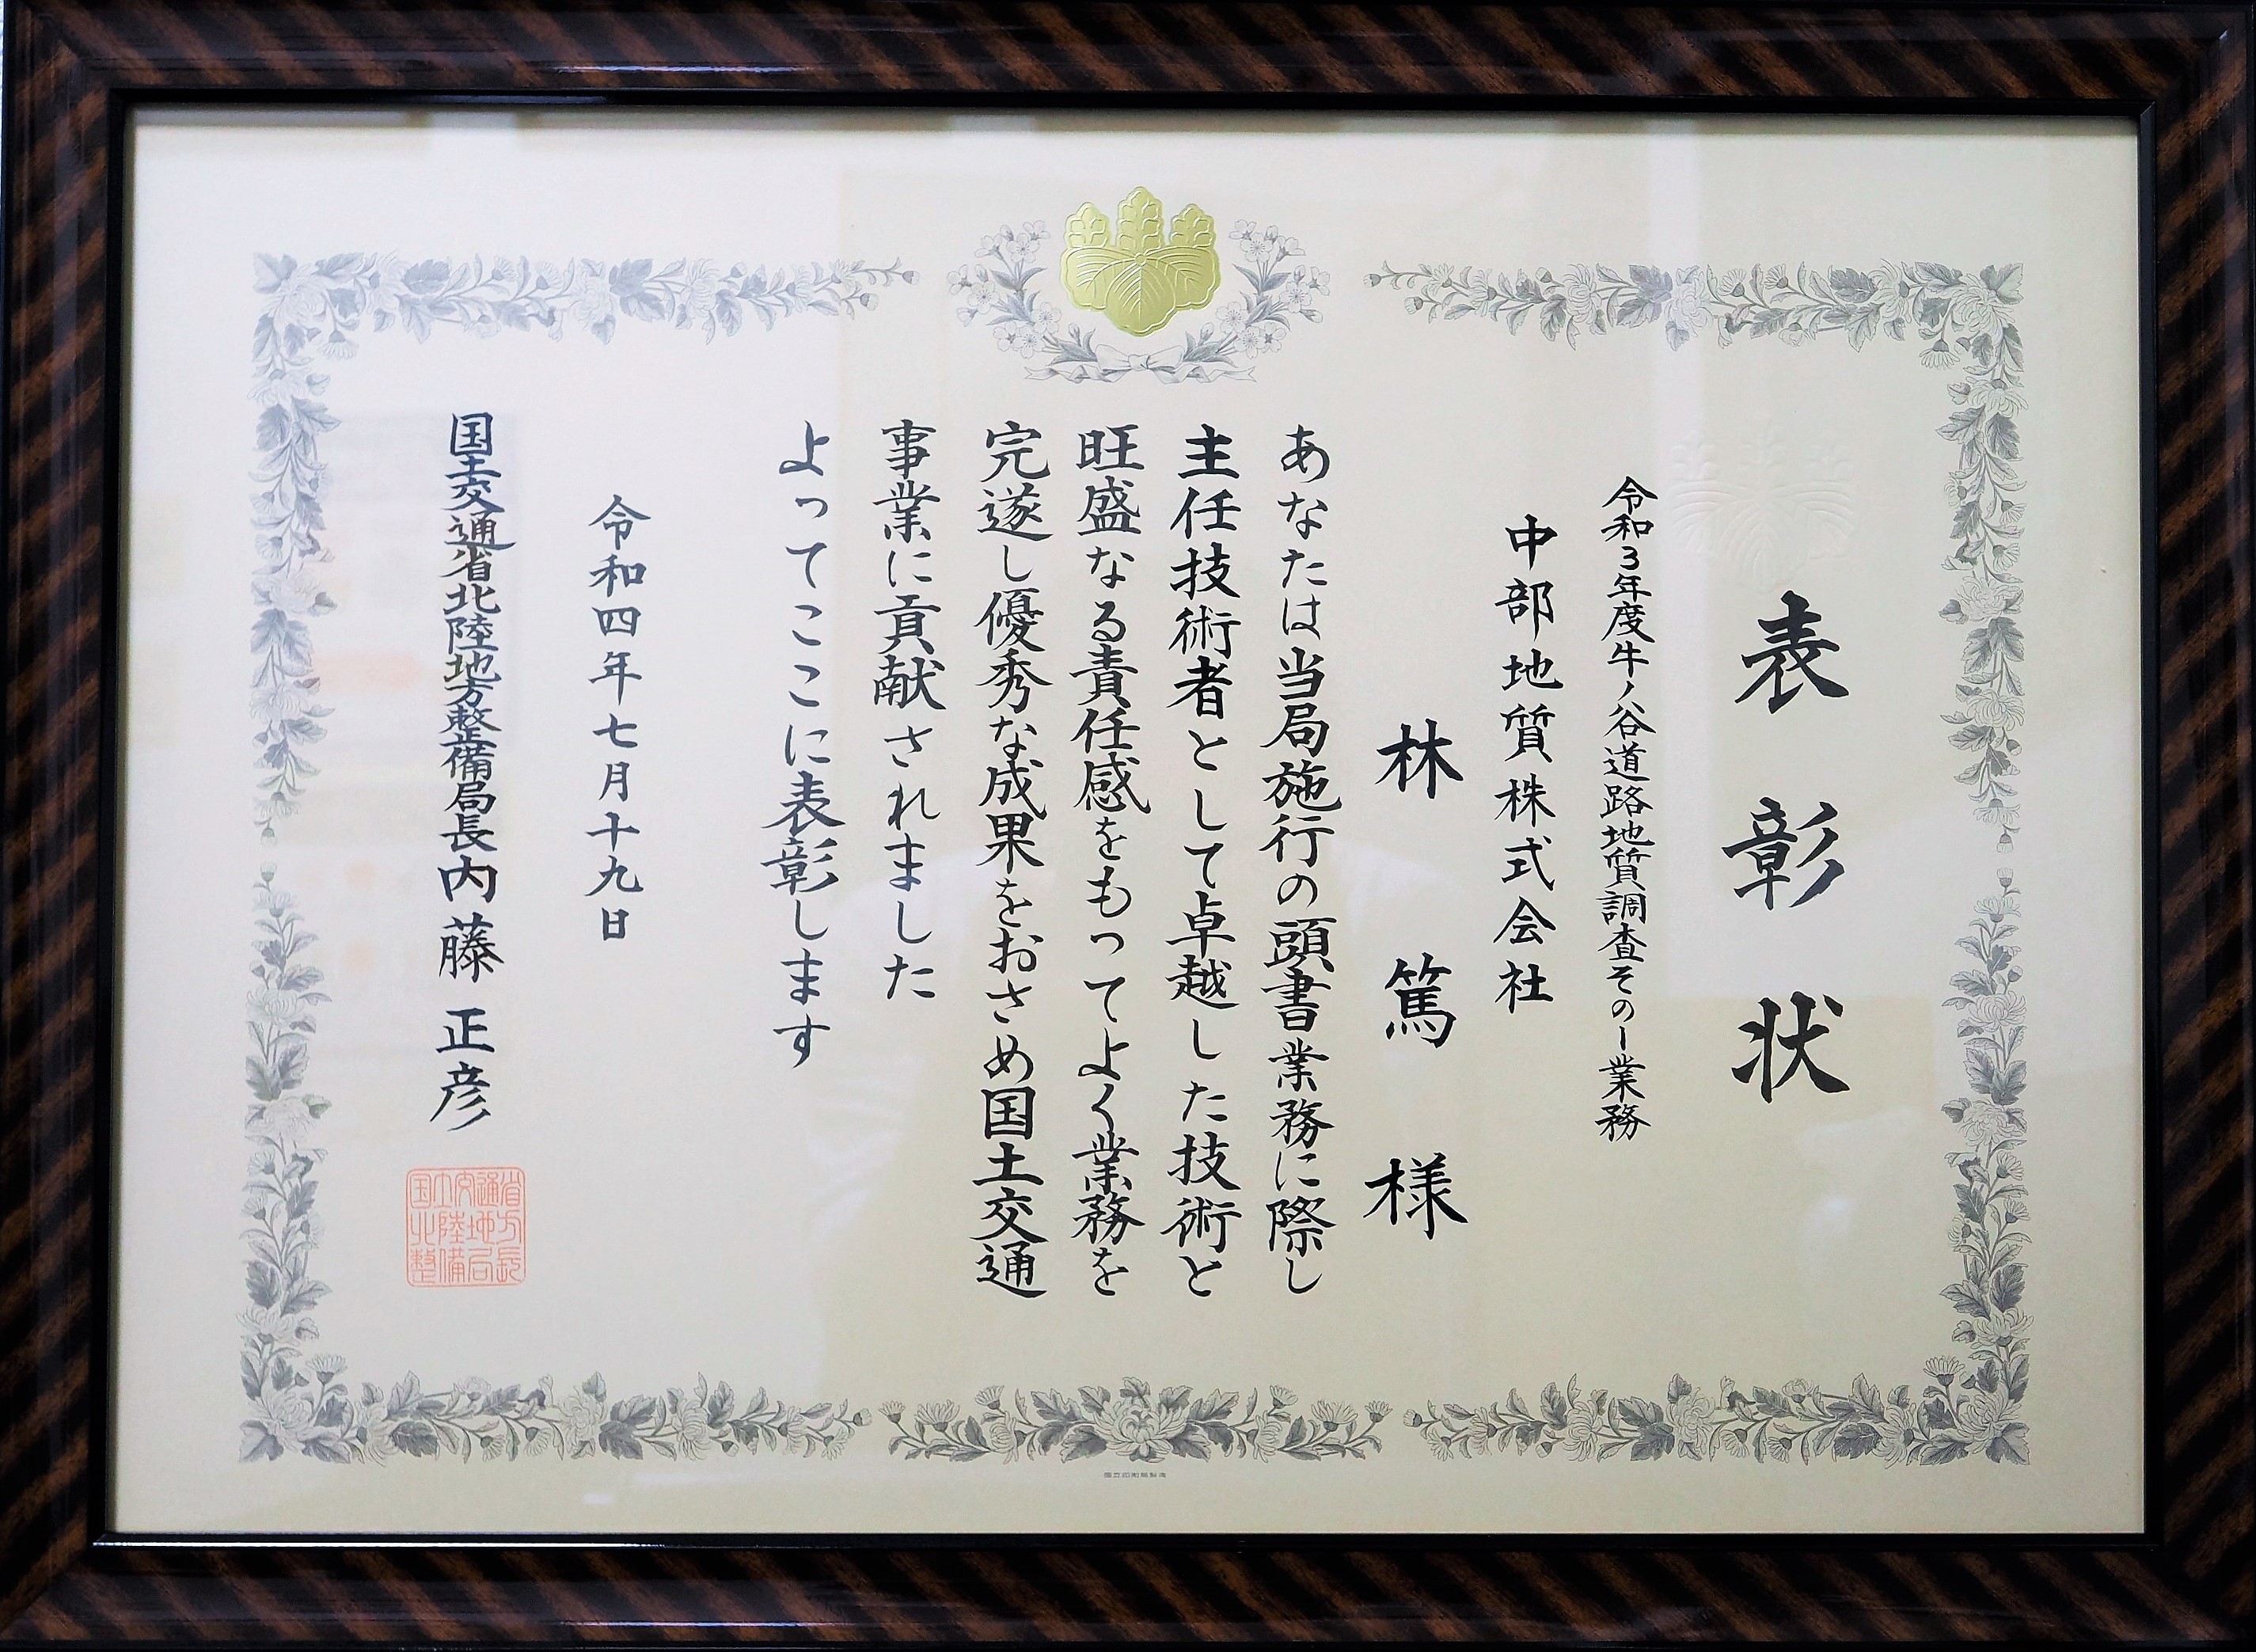 表彰状
令和3年度牛ノ谷道路地質調査その1業務
中部地質株式会社
林篤様
あなたは当局施行の頭書業務に際し
主任技術者として卓越した技術と
旺盛なる責任感をもってよく業務を
完遂し優秀な成果をおさめ国土交通
事業に貢献されました
よってここに表彰します
令和四年七月十九日
国土交通省北陸地方整備局長内藤正彦